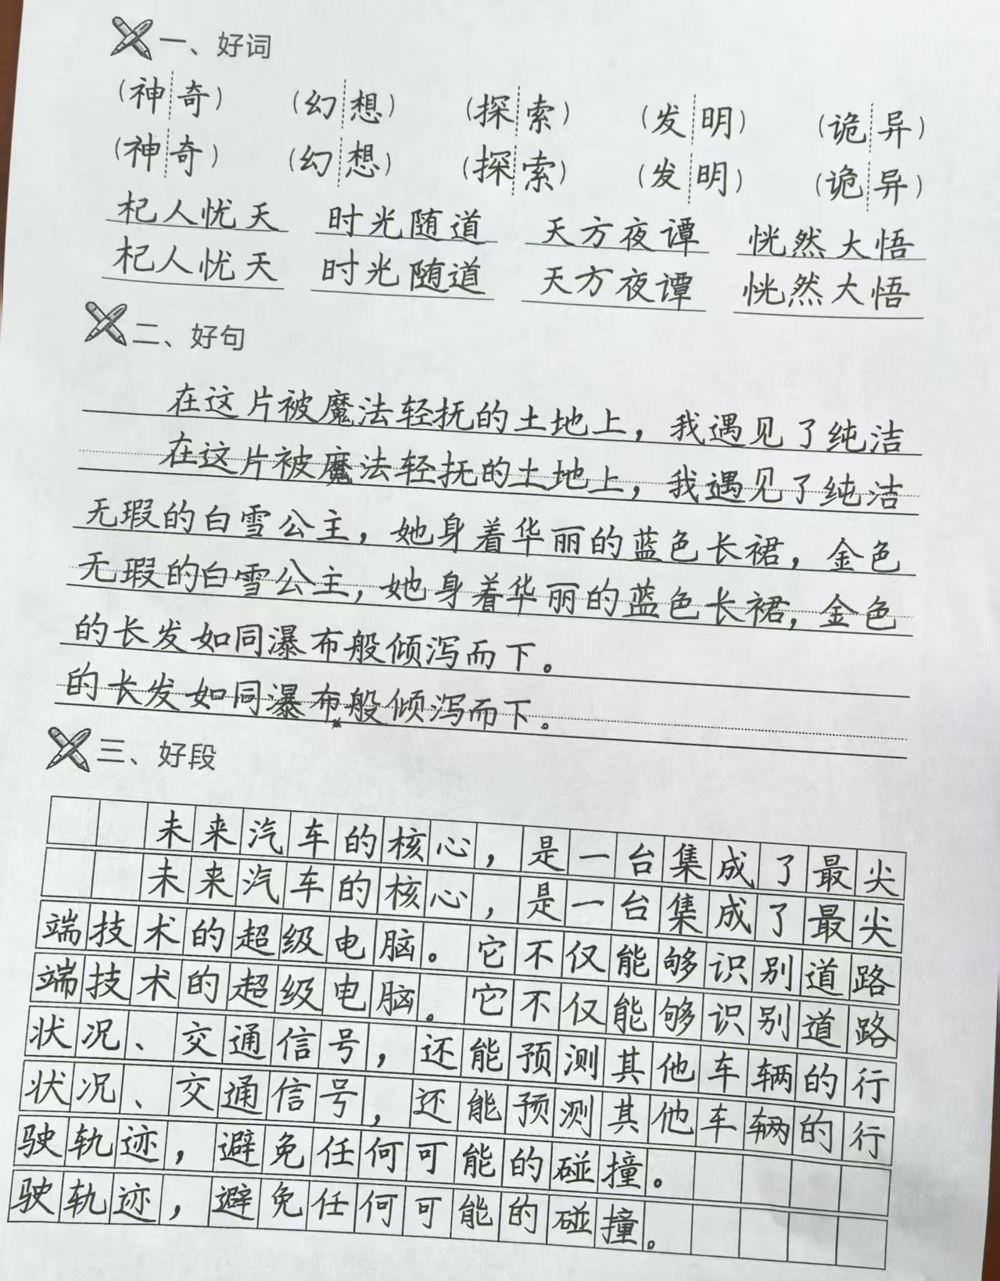 一、好词
(神奇) (幻想) (探索) (发明) (诡异)
(神奇) (幻想) (探索) (发明) (诡异)
杞人忧天 时光随道 天方夜谭 恍然大悟
杞人忧天 时光随道 天方夜谭 恍然大悟
二、好句
在这片被魔法轻抚的土地上，我遇见了纯洁
在这片被魔法轻抚的土地上，我遇见了纯洁
无瑕的白雪公主，她身着华丽的蓝色长裙，金色
无瑕的白雪公主，她身着华丽的蓝色长裙，金色
的长发如同瀑布般倾泻而下。
的长发如同瀑布般倾泻而下。
三、好段
未来汽车的核心，是一台集成了最尖
未来汽车的核心，是一台集成了最尖
端技术的超级电脑。它不仅能够识别道路
端技术的超级电脑。它不仅能够识别道路
状况、交通信号，还能预测其他车辆的行
状况、交通信号，还能预测其他车辆的行
驶轨迹，避免任何可能的碰撞。
驶轨迹，避免任何可能的碰撞。